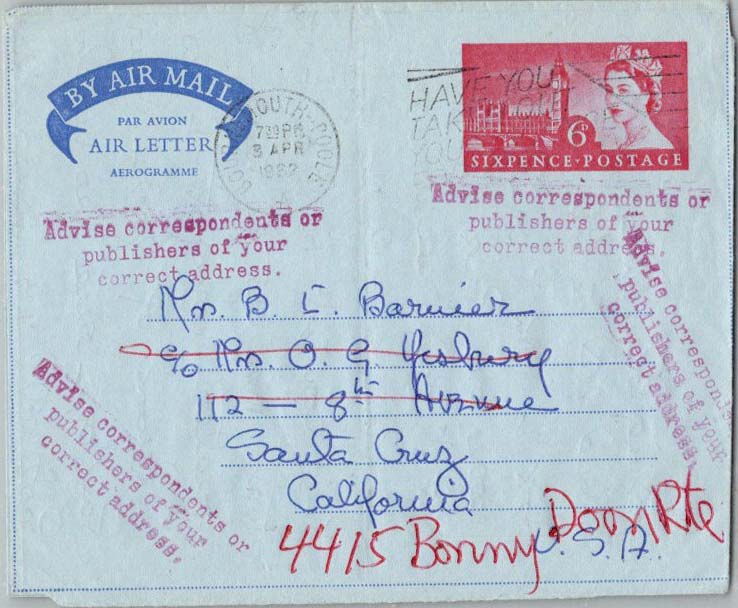 BY AIR MAIL
PAR AVION
AIR LETTER
AEROGRAMME
BOURNEMOUTH-POOLE
7 30 PM
3 APR
HAVE YOU
TAK
YOU
6D
SIXPENCE·POSTAGE
Advise correspondents or
publishers of your
correct address.
Advise correspondents or
publishers of your
correct address.
Advise correspondents or
publishers of your
correct address.
Advise correspondents or
publishers of your
correct address.
B. E. Barnier
c/o O. G.
112 — 8th Avenue
Santa Cruz
California
U.S.A.
4415 Bonny Doon Rte